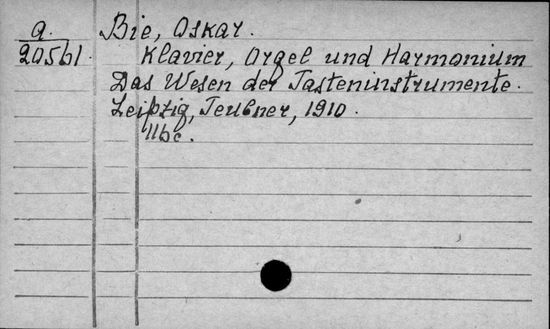 a.
20561.
Bie, Oskar.
Klavier, Orgel und Harmonium
Das Wesen der Tasteninstrumente.
Leipzig, Teubner, 1910.
11bc.